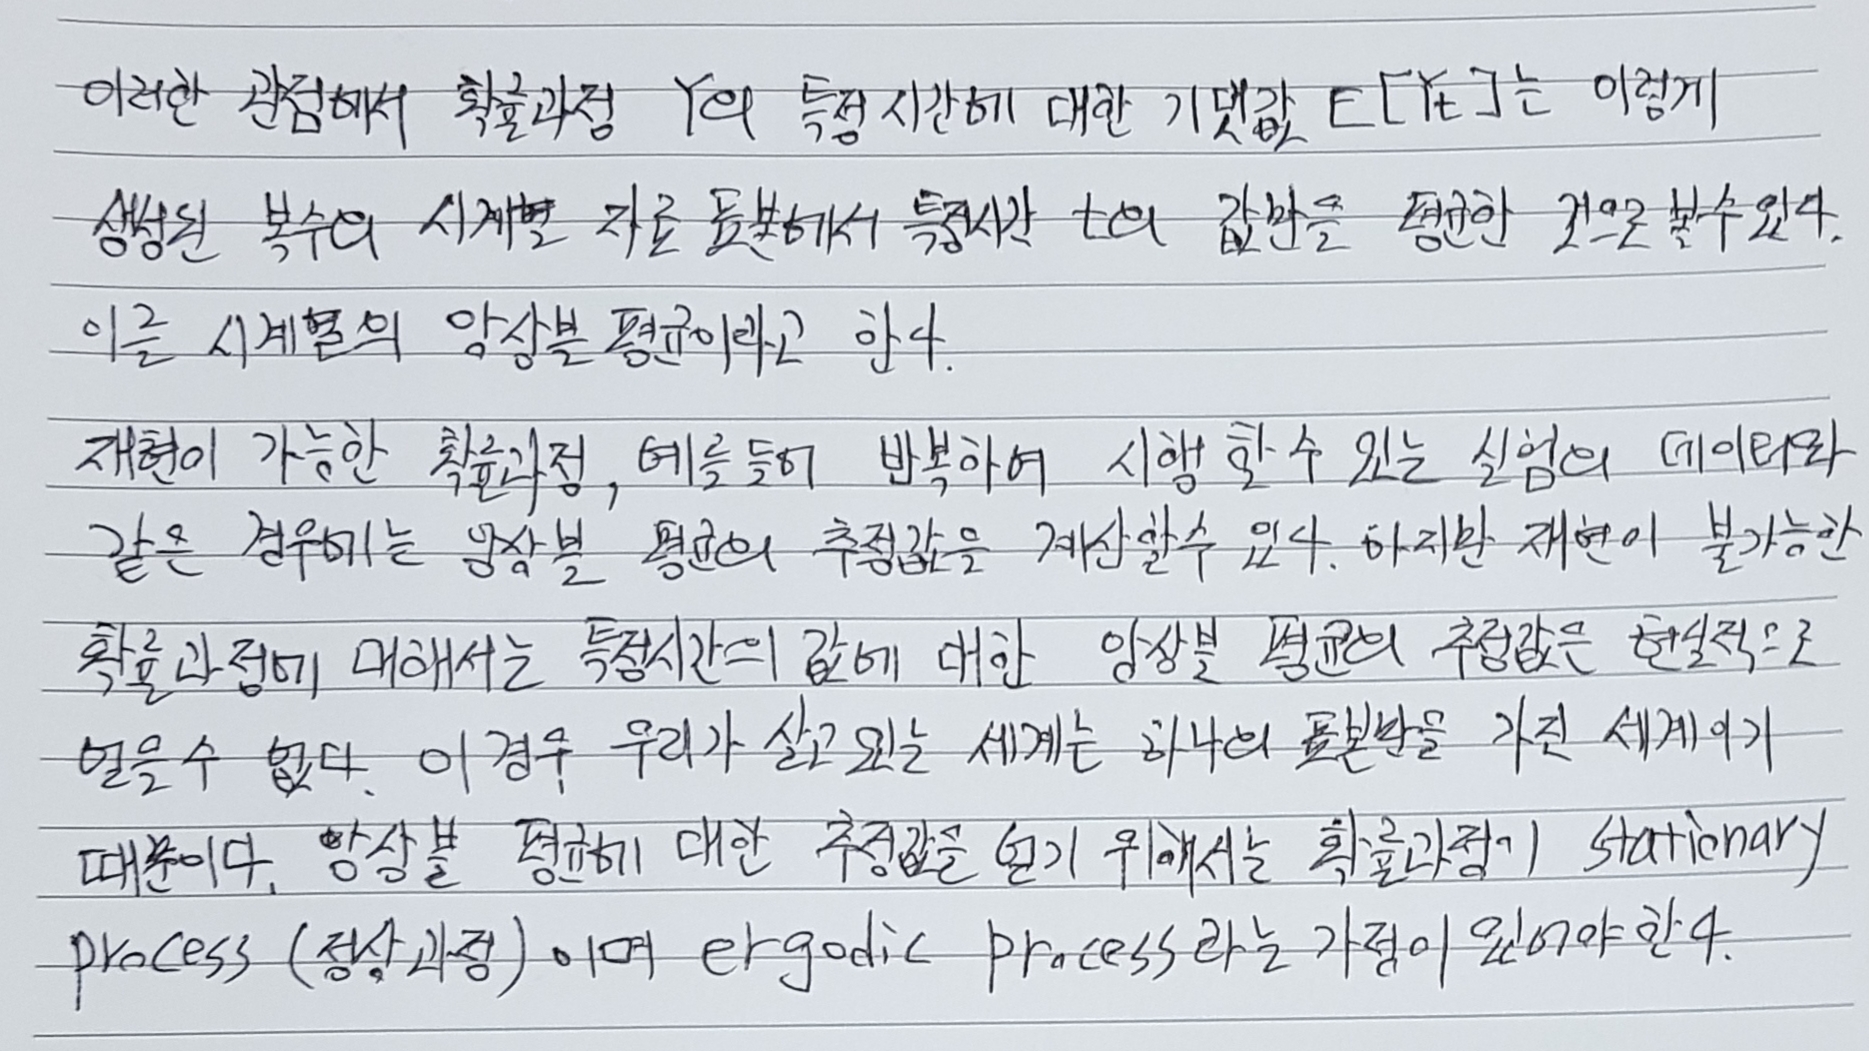 이러한 관점에서 확률과정 Y의 특정시간에 대한 기댓값 E[Yt]는 이렇게
생성된 복수의 시계열 자료 표본에서 특정시간 t의 값만을 평균한 것으로 볼 수 있다.
이를 시계열의 앙상블 평균이라고 한다.
재현이 가능한 확률과정, 예를 들어 반복하여 시행할 수 있는 실험의 데이터와
같은 경우에는 앙상블 평균의 추정값을 계산할 수 있다. 하지만 재현이 불가능한
확률과정에 대해서는 특정시간의 값에 대한 앙상블 평균의 추정값은 현실적으로
얻을 수 없다. 이 경우 우리가 살고 있는 세계는 하나의 표본만을 가진 세계이기
때문이다. 앙상블 평균에 대한 추정값을 얻기 위해서는 확률과정이 stationary
process (정상과정)이며 ergodic process라는 가정이 있어야 한다.